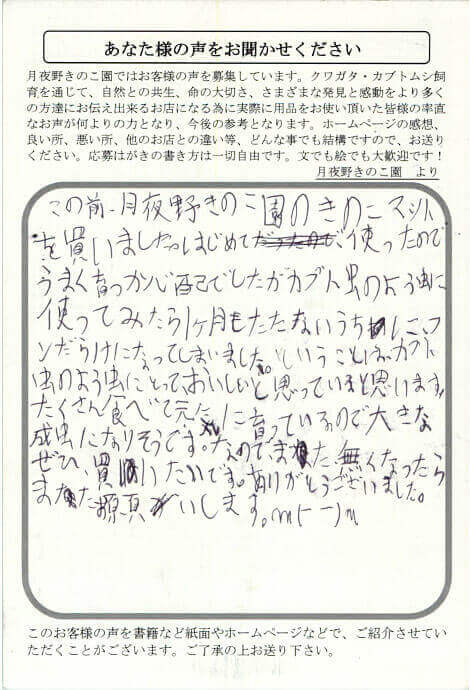 あなた様の声をお聞かせください
月夜野きのこ園ではお客様の声を募集しています。クワガタ・カブトムシ飼
育を通じて、自然との共生、命の大切さ、さまざまな発見と感動をより多く
の方達にお伝え出来るお店になる為に実際に用品をお使い頂いた皆様の率直
なお声が何よりの力となり、今後の参考となります。ホームページの感想、
良い所、悪い所、他のお店との違い等、どんな事でも結構ですので、お送り
ください。応募はがきの書き方は一切自由です。文でも絵でも大歓迎です！
月夜野きのこ園 より
この前、月夜野きのこ園のきのこマット
を買いました。はじめて使ったので
うまく育つか心配でしたがカブト虫のよう虫に
使ってみたら1ヶ月もたたないうちに、フ
ンだらけになってしまいました。ということはカブト
虫のよう虫にとっておいしいと思っていると思います。
たくさん食べて元気に育っているので大きな
成虫になりそうです。なのでまた、無くなったら
ぜひ、買いたいです。ありがとうございました。
またお願いします。m(--)m
このお客様の声を書籍など紙面やホームページなどで、ご紹介させてい
ただくことがございます。ご了承の上お送り下さい。